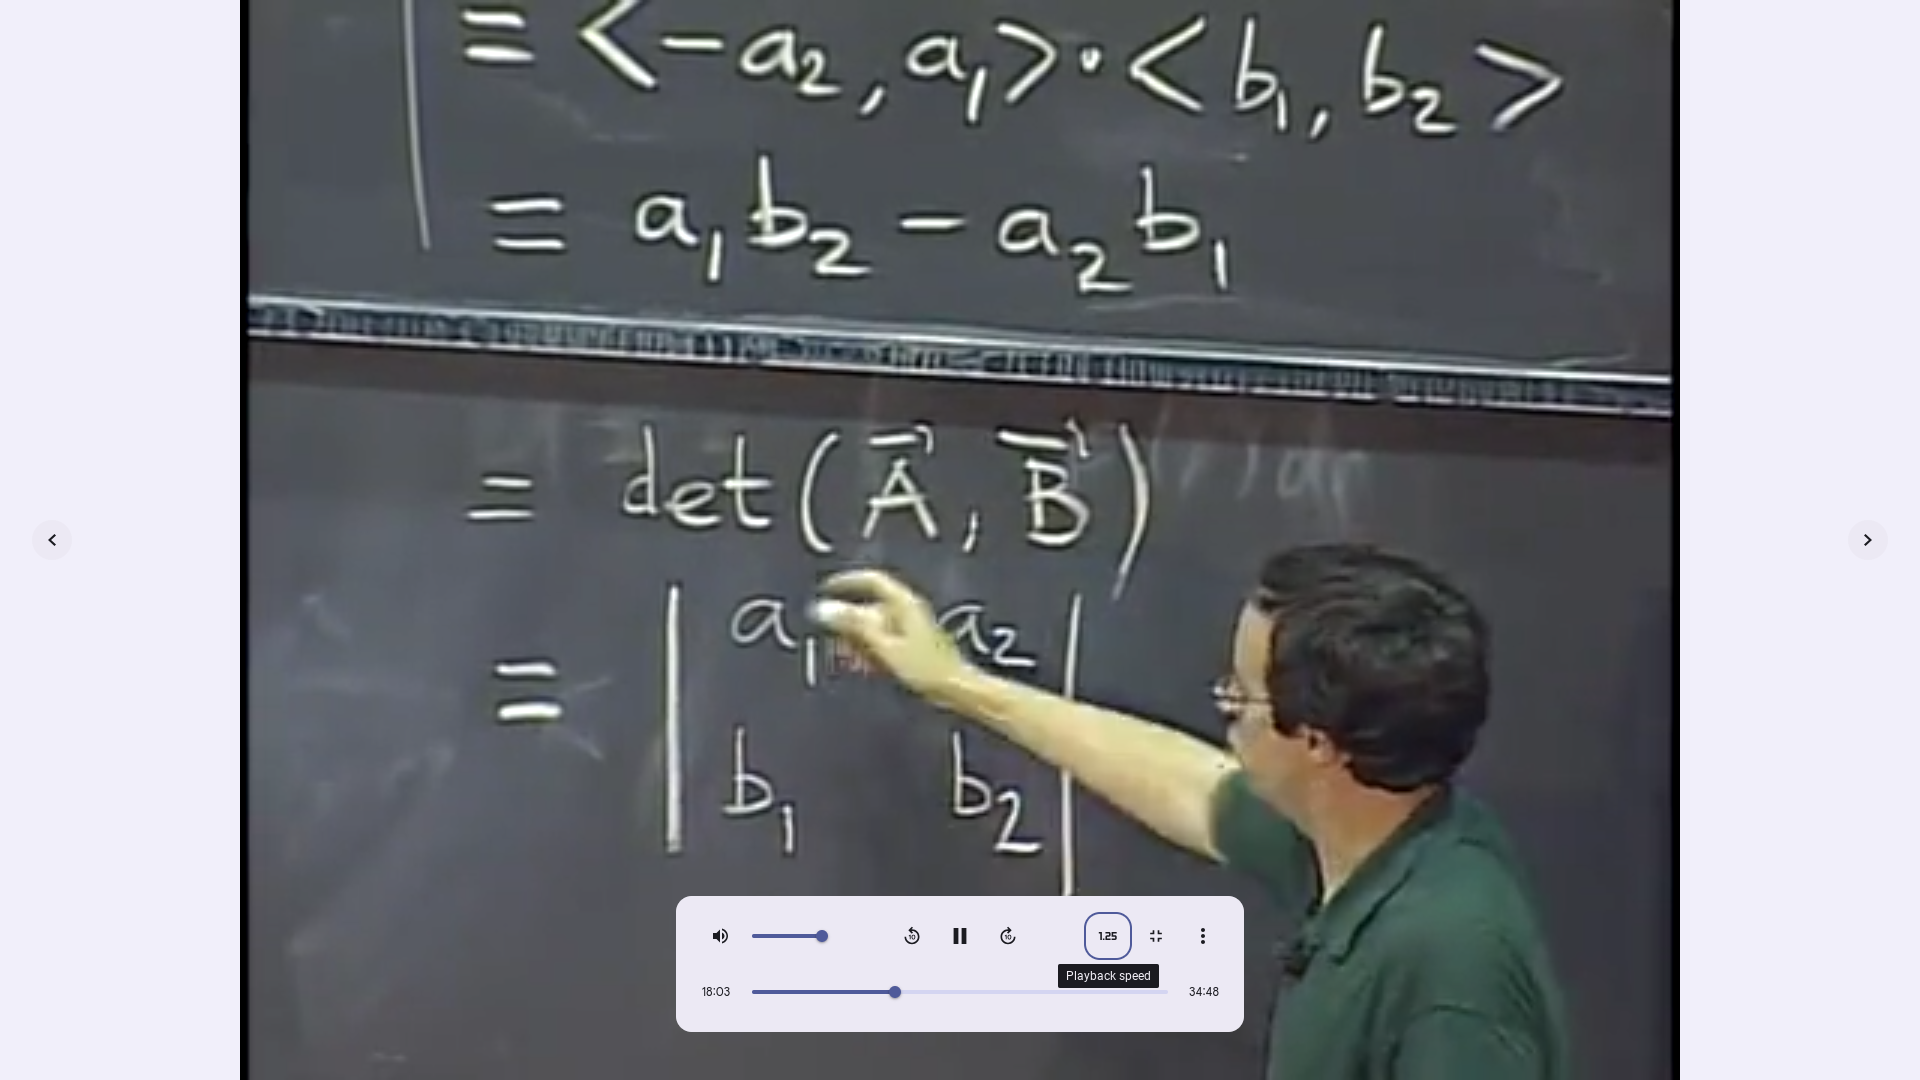 = <-a₂, a₁>·<b₁, b₂>
= a₁b₂ - a₂b₁
= det(A⃗, B⃗)
= | a₁ a₂ |
| b₁ b₂ |
10
10
1.25
Playback speed
18:03
34:48